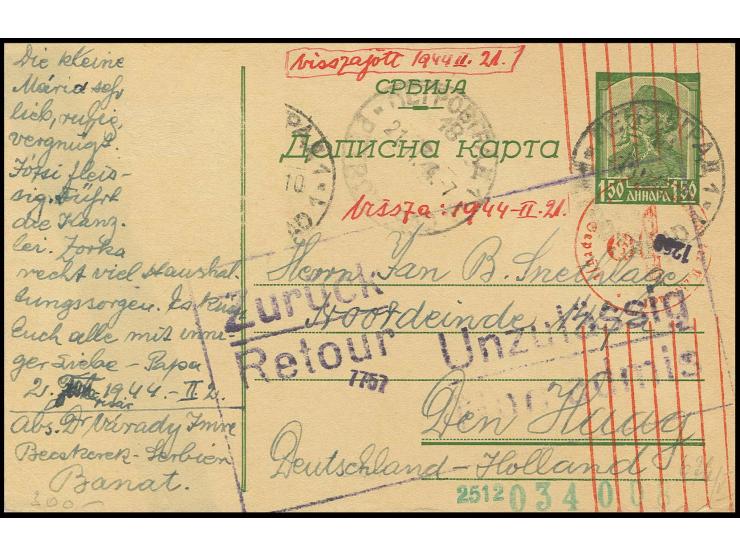 Die kleine
Mária sehr
lieb, ruhig,
vergnügt.
Jótsi fleis-
sig. Führt
die Kanz-
lei. Zorka
recht viel Haushal-
tungssorgen. Es küsst
Euch alle mit inni-
ger Liebe - Papa
1944-II-2.
Abs. Dr Várady Imre
Becskerek-Serbien
Banat.
300-
Visszajött 1944 II. 21.
СРБИЈА
Дописна карта
Vissza: 1944-II-21.
1.50 ДИНАРА 1.50
1260
Herrn Jan B. Snethlage
Noordeinde
Den Haag
Deutschland-Holland
Zurück
Retour
7757
Unzulässig
Non admis
2512 034006